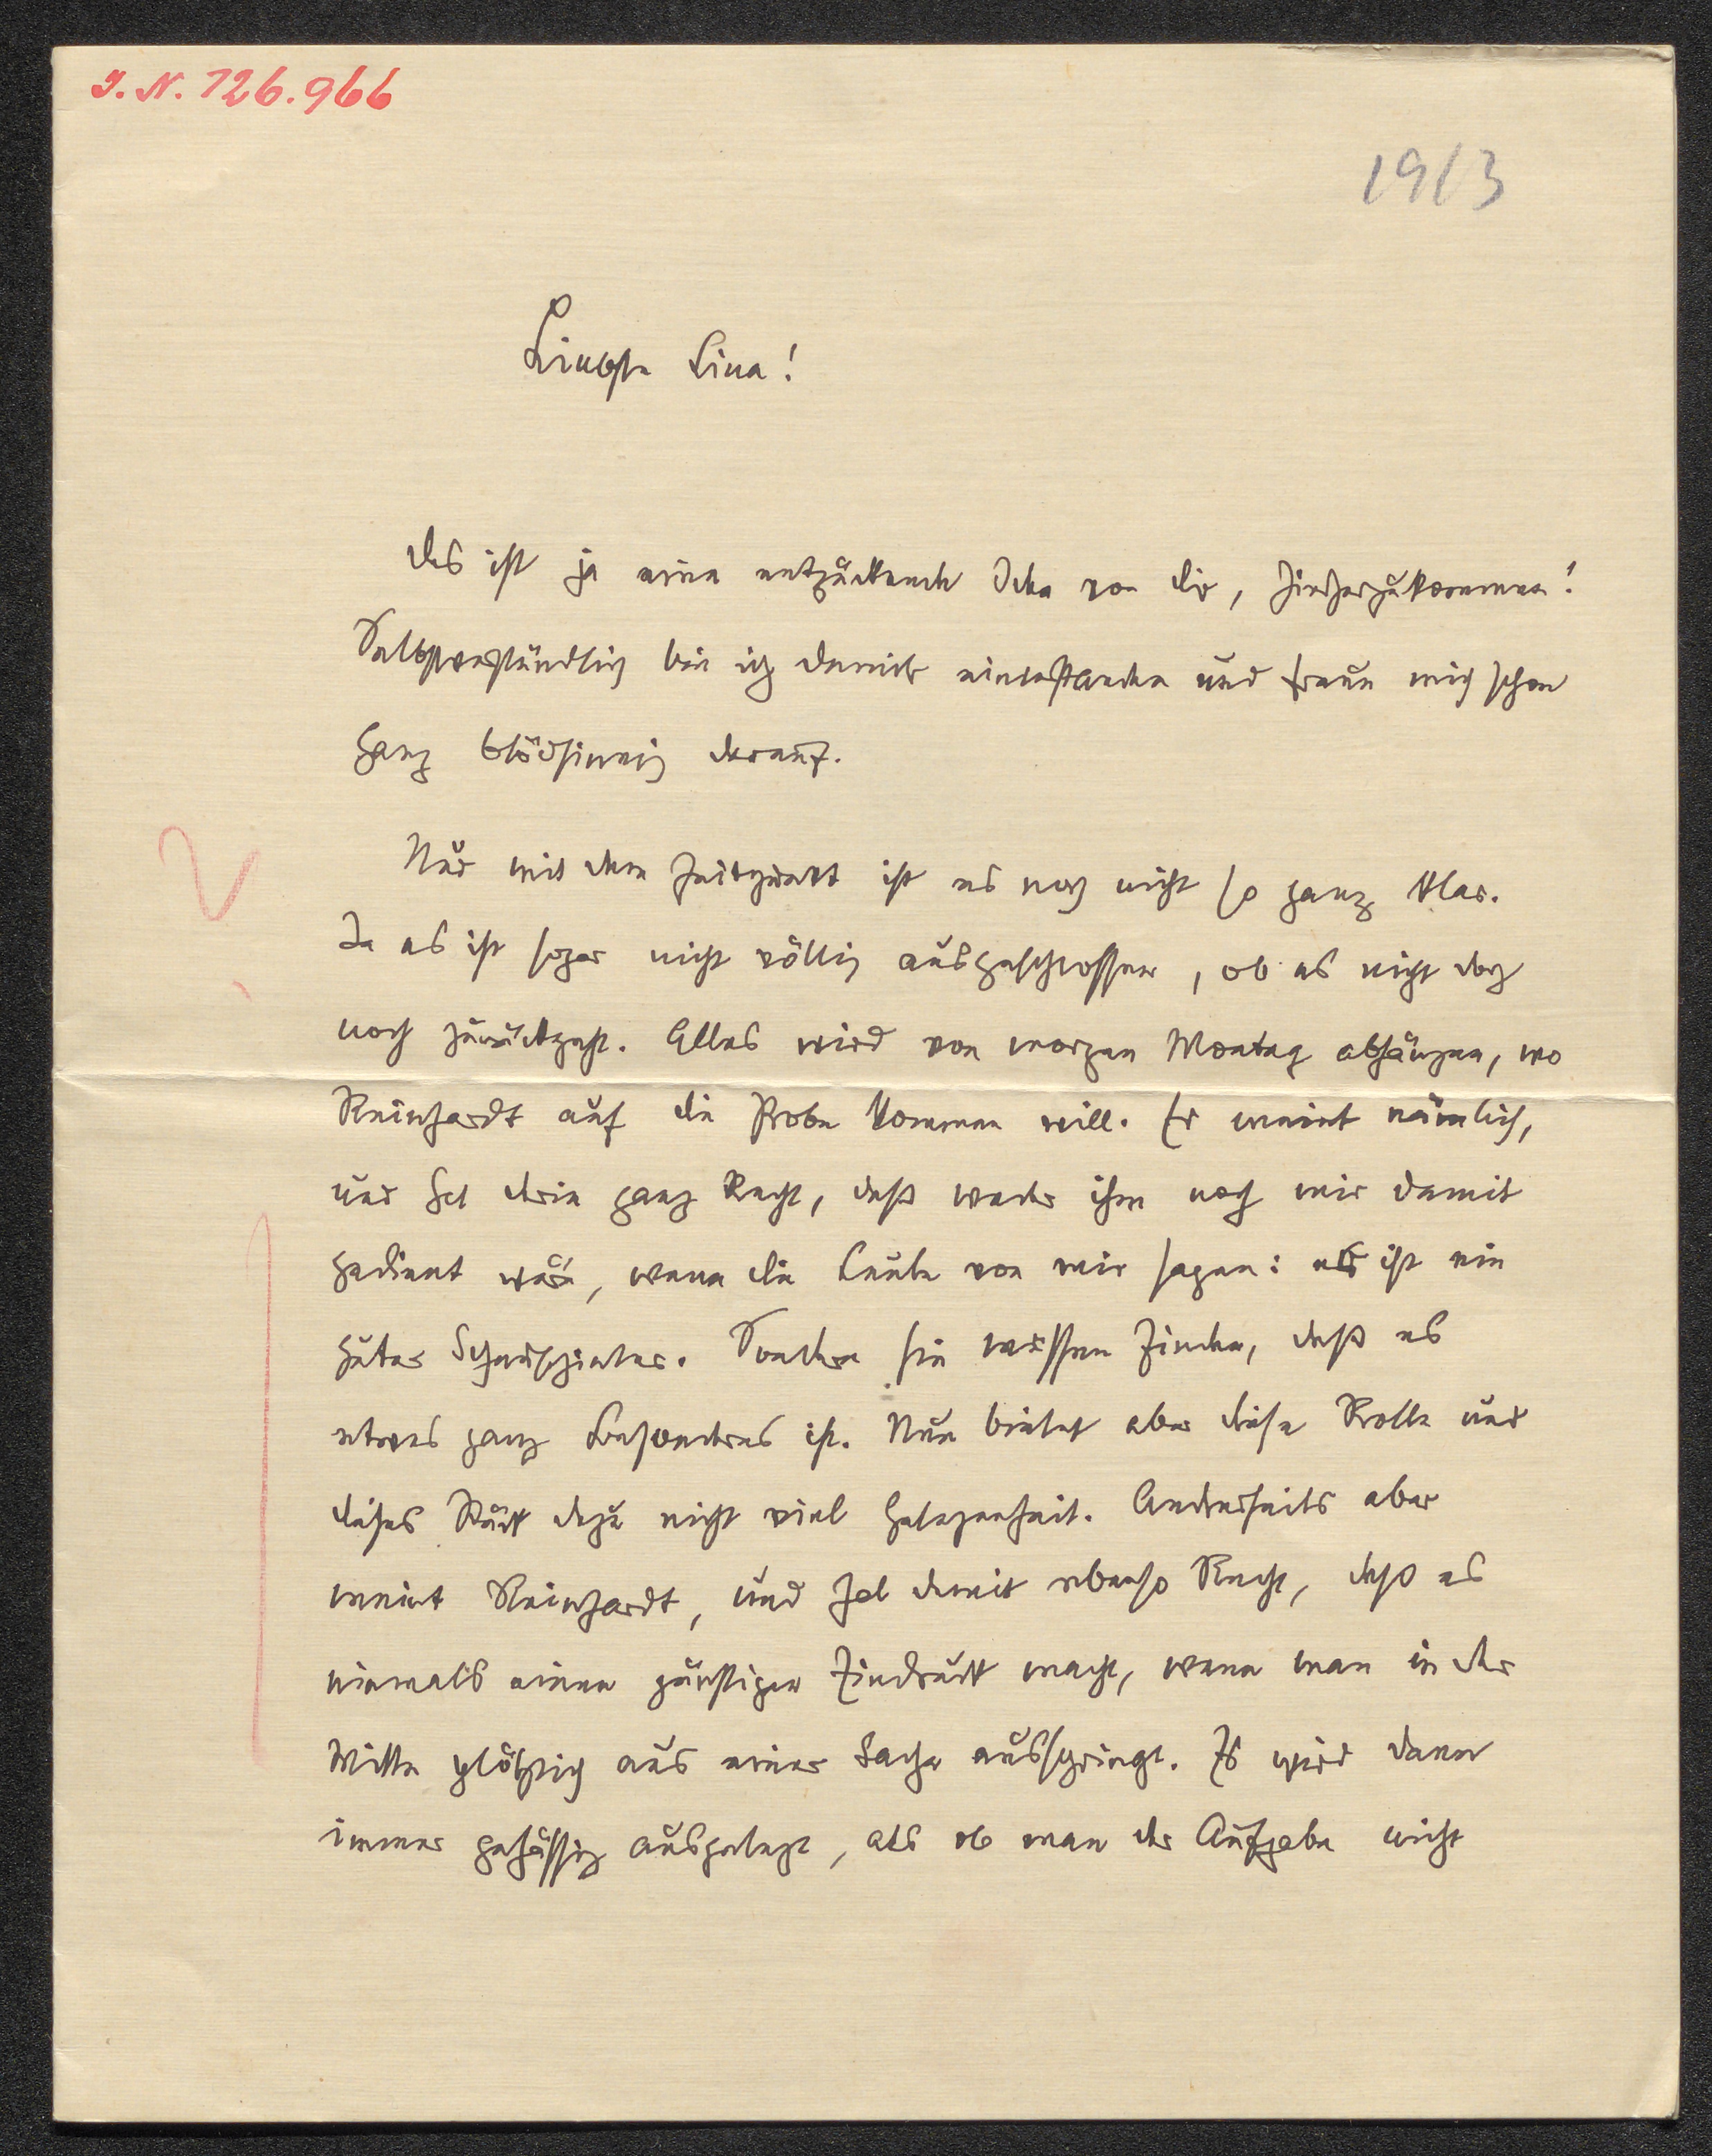 I. N. 126.966
1913
Liebste Lina!
Das ist ja eine entzückende Idee von dir, hierherzukommen!
Selbstverständlich bin ich damit einverstanden und freue mich schon
ganz blödsinnig darauf.
Nur mit dem Zeitpunkt ist es noch nicht so ganz klar.
Ja es ist sogar nicht völlig ausgeschlossen, ob es nicht doch
noch zurückgeht. Alles wird von morgen Montag abhängen, wo
Reinhardt auf die Probe kommen will. Er meint nämlich,
und hat darin ganz Recht, dass weder ihm noch mir damit
gedient wäre, wenn die Leute von mir sagen: es ist ein
guter Schauspieler. Sondern sie müssen finden, dass es
etwas ganz Besonderes ist. Nun bietet aber diese Rolle und
dieses Stück dazu nicht viel Gelegenheit. Anderseits aber
meint Reinhardt, und hat damit ebenso Recht, dass es
niemals einen günstigen Eindruck macht, wenn man in der
Mitte plötzlich aus einer Sache ausspringt. Es wird dann
immer gehässig ausgelegt, als ob man der Aufgabe nicht